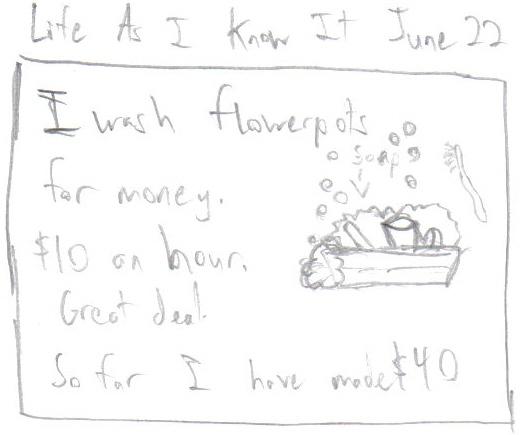 Life As I Know It June 22
I wash flowerpots
soap
for money.
$10 an hour.
Great deal.
So far I have made $40